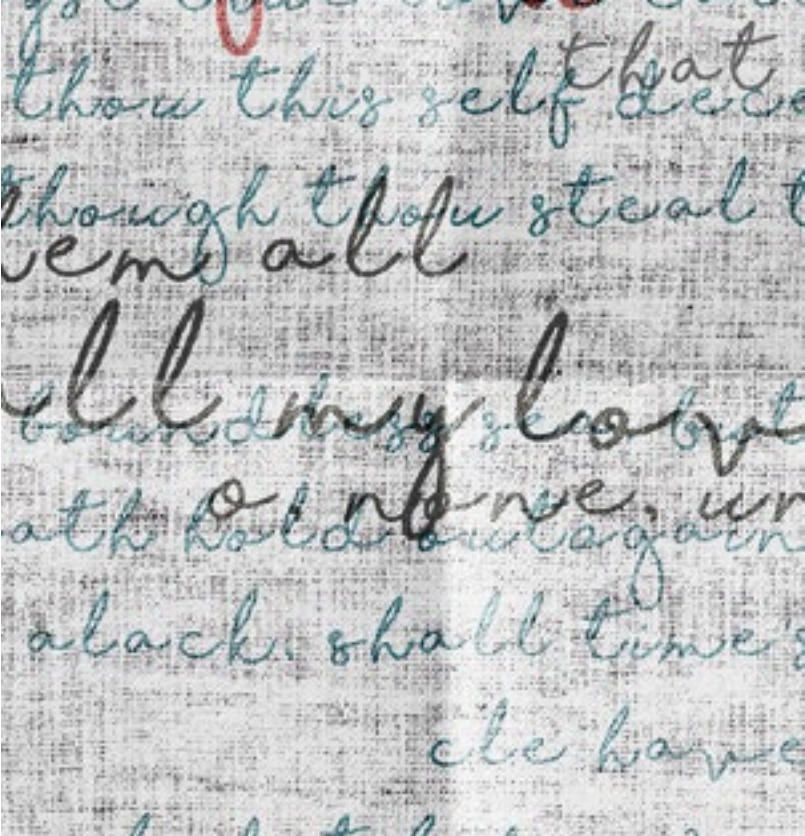 that
thou this self dece
though thou steal t
hem all
all my lov
boundless sea but
o, none, un
ath hold out again
alack, shall time's
cle have